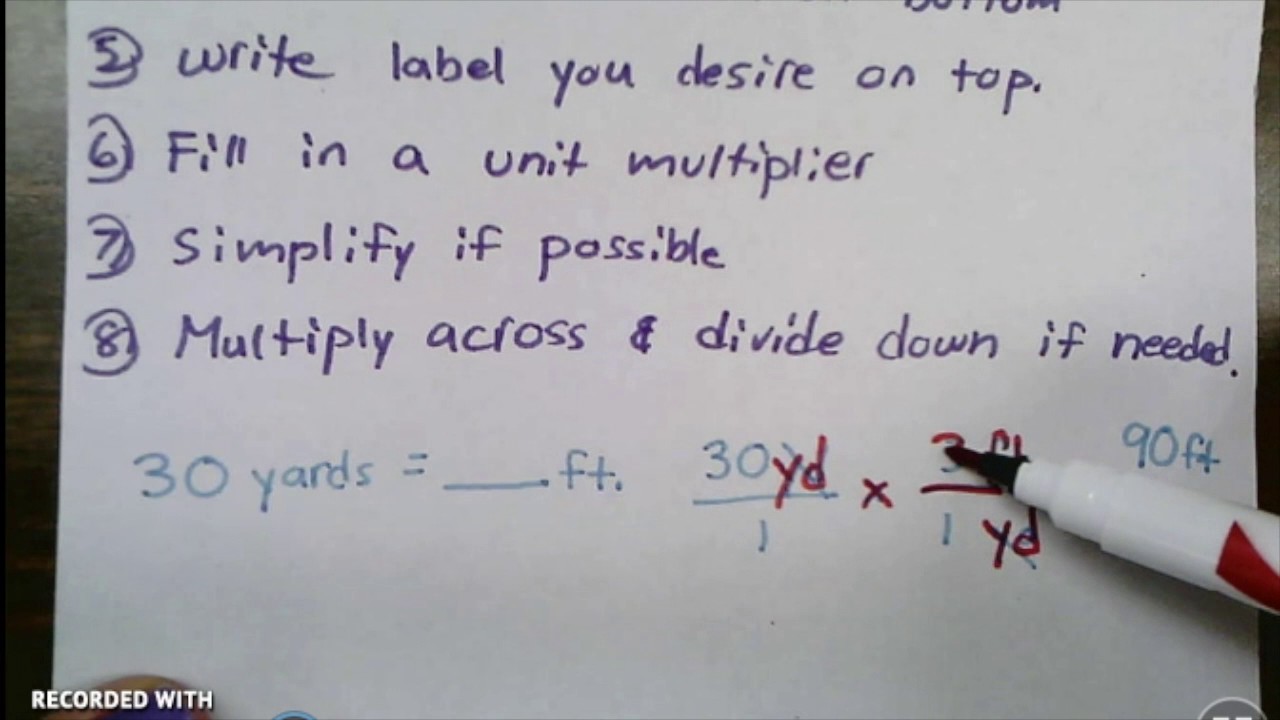 bottom
5 Write label you desire on top.
6 Fill in a unit multiplier
7 Simplify if possible
8 Multiply across & divide down if needed.
30 yards = ___ ft. 30yd/1 x 3 ft/1 yd 90ft
RECORDED WITH